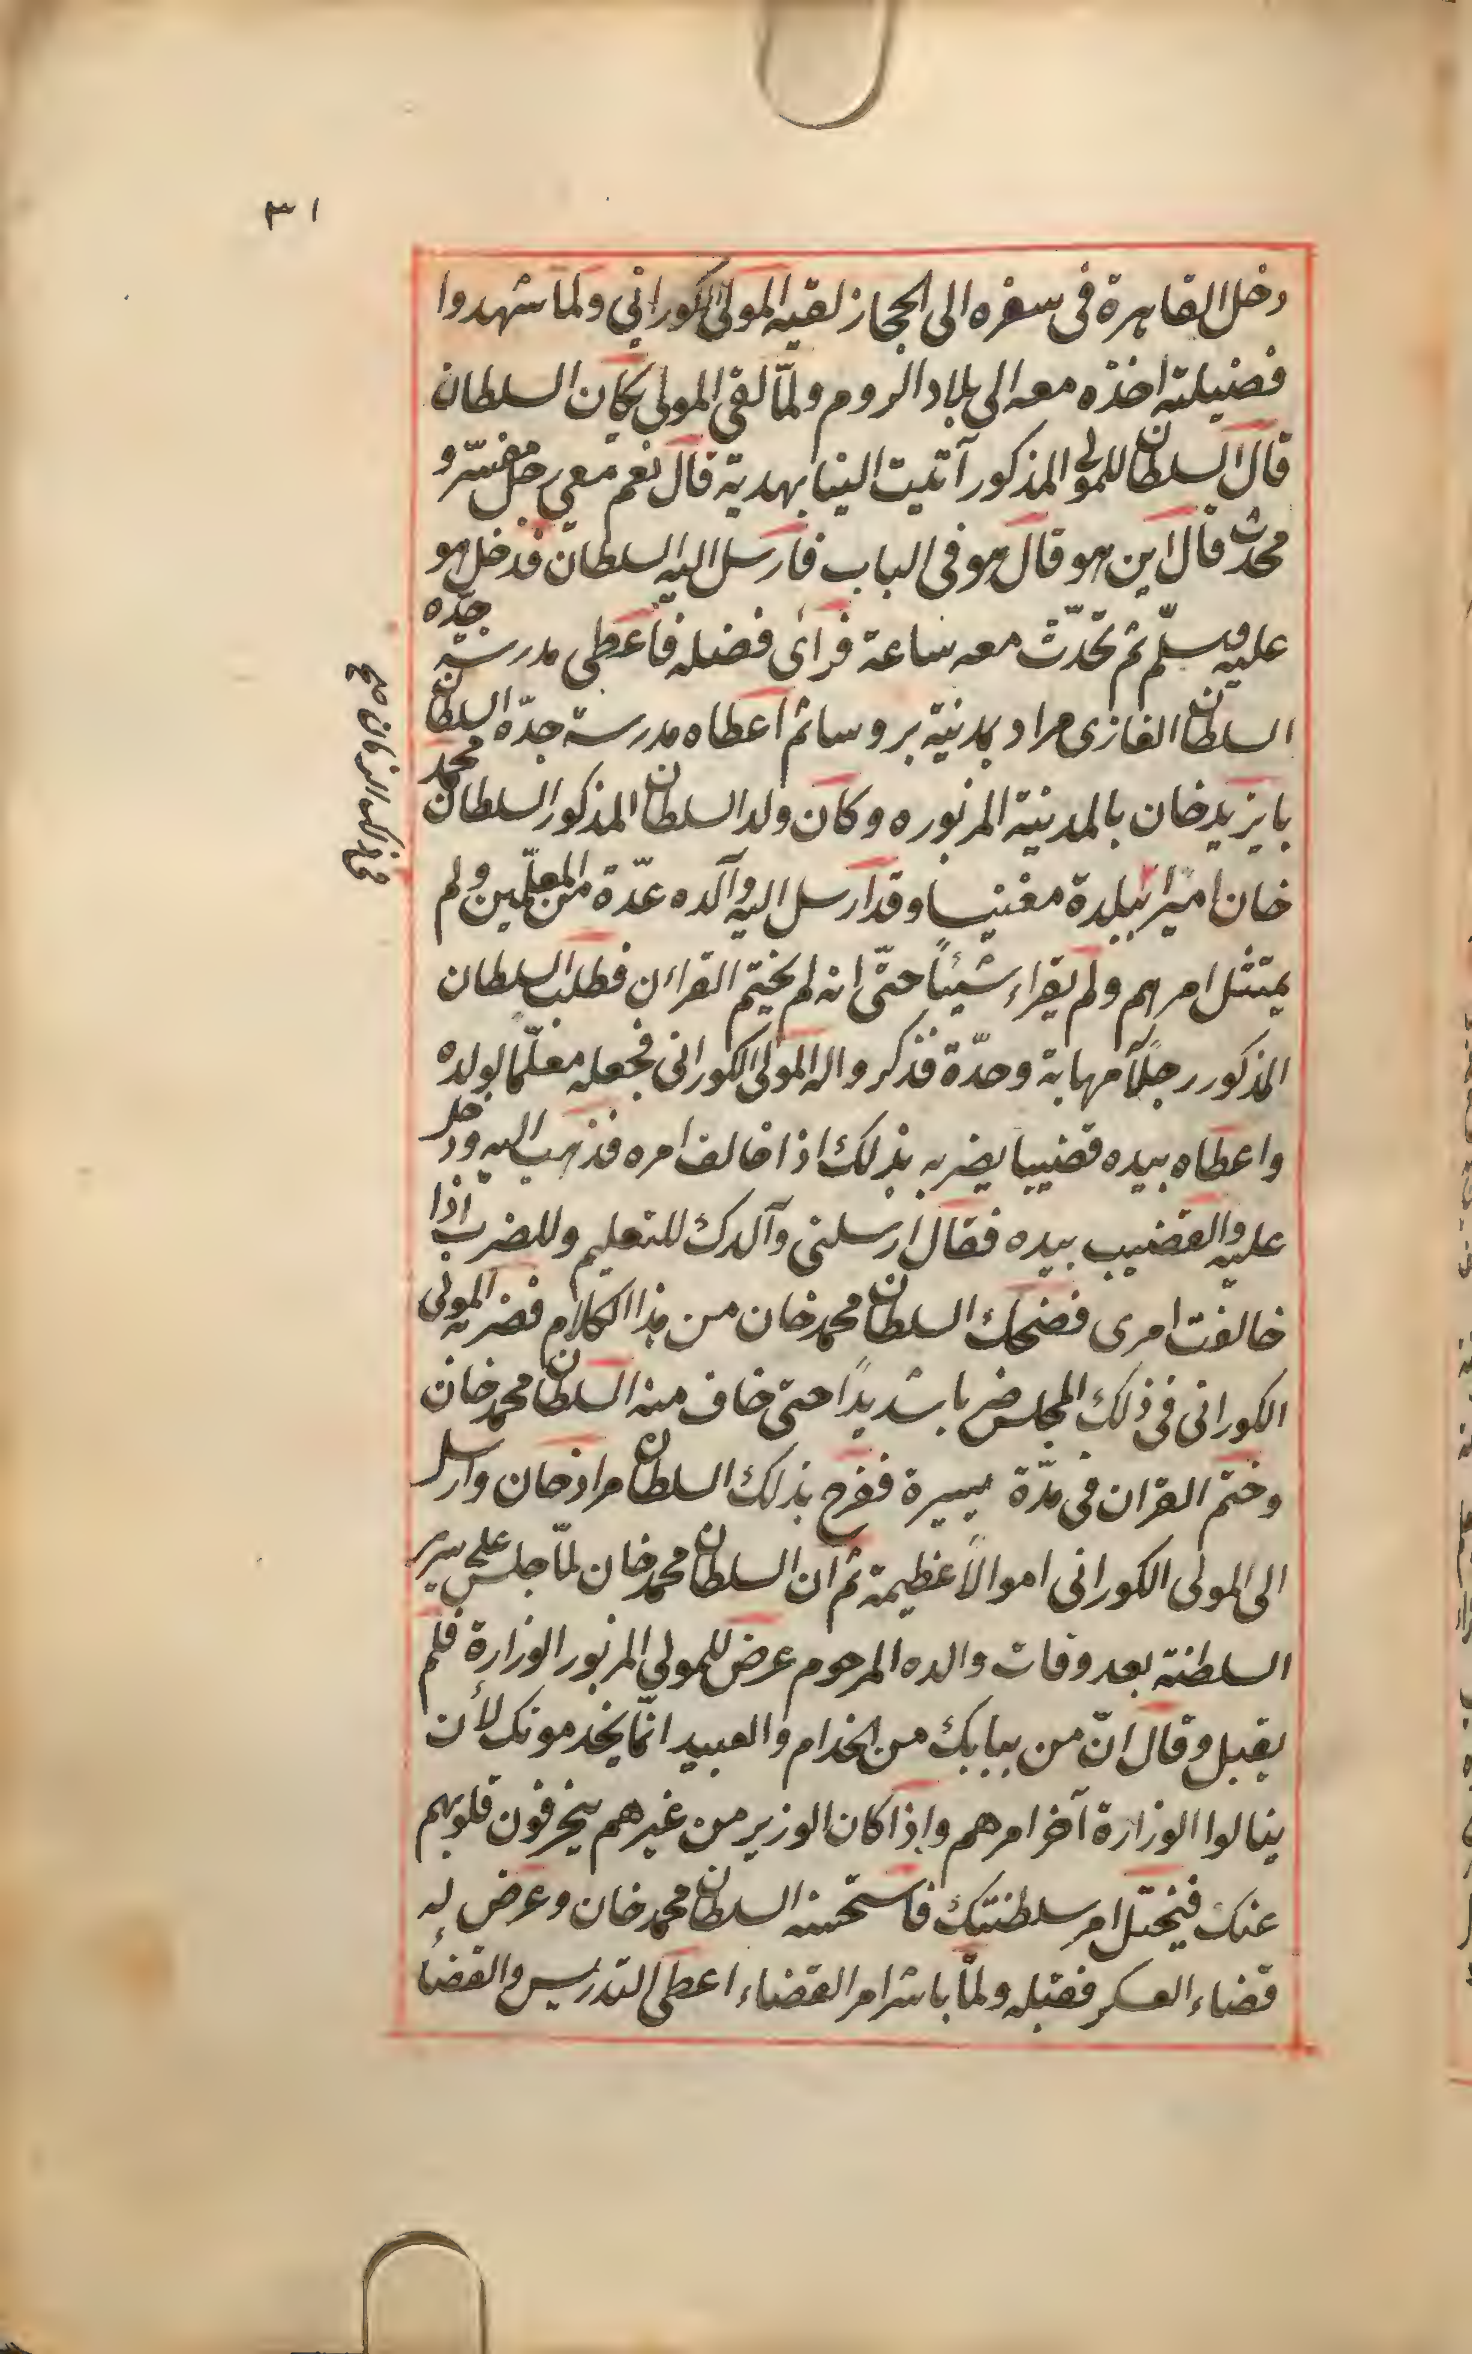 ٣١
دخل القاهرة فى سفره الى الحجاز لقيه المولى الكورانى ولما شهدوا
فضيلته اخذه معه الى بلاد الروم ولمّا لقى المولى يكان السلطان
قال السلطان للمولى المذكور آتيت الينا بهدية قال نعم معى رجل مفسّر و
محدّث قال اين هو قال هو فى الباب فارسل اليه السلطان فدخل هو
عليه وسلّم ثم تحدّث معه ساعة فرأى فضله فاعطى مدرسة جدّه
السلطان الغازى مراد بمدينة بروسا ثم اعطاه مدرسة جدّه السلطان
بايزيد خان بالمدينة المزبوره وكان ولد السلطان المذكور السلطان محمد
خان اميرا ببلدة مغنيسا وقد ارسل اليه والده عدّة من المعلّمين ولم
يمتثل امرهم ولم يقراء شيئاً حتّى انه لم يختم القراءن فطلب السلطان
المذكور رجلاً مهابة وحدّة فذكروا له المولى الكورانى فجعله معلّما لولده
واعطاه بيده قضيبا يضربه بذلك اذا خالف امره فذهب اليه ودخل
عليه والقضيب بيده فقال ارسلنى والدك للتعليم وللضرب اذا
خالفت امرى فضحك السلطان محمد خان من هذا الكلام فضربه المولى
الكورانى فى ذلك المجلس ضربا شديداً حتى خاف منه السلطان محمد خان
وختم القران فى مدّة يسيرة ففرح بذلك السلطان مراد خان وارسل
الى المولى الكورانى اموالاً عظيمة ثم ان السلطان محمد خان لمّا جلس على سرير
السلطنة بعد وفات والده المرحوم عرض للمولى المزبور الوزارة فلم
يقبل وقال انّ من ببابك من الخدام والعبيد انّما يخدمونك لأن
ينالوا الوزارة آخر امرهم واذا كان الوزير من غيرهم ينحرفون قلوبهم
عنك فيختل امر سلطنتك فاستحسنه السلطان محمد خان وعرض له
قضاء العسكر فقبله ولمّا باشر امر القضاء اعطى التدريس والقضاء